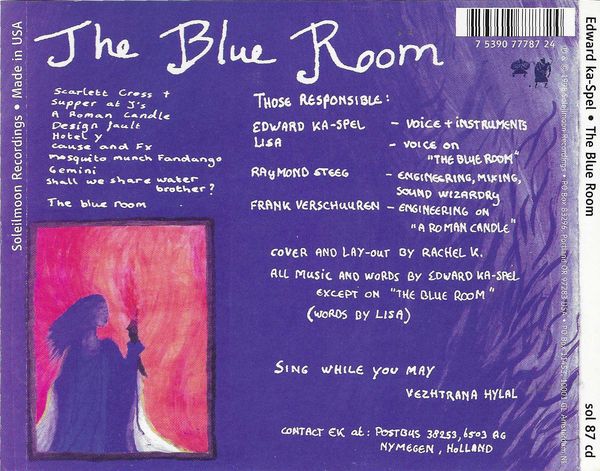 Soleilmoon Recordings • Made in USA
The Blue Room
7 5390 77787 24
Scarlett Cross +
Supper at J's
A Roman Candle
Design fault
Hotel y
Cause and Fx
mosquito munch Fandango
Gemini
Shall we share water
brother?
The blue room
Those Responsible:
Edward Ka-Spel – Voice + Instruments
Lisa – Voice on
"The Blue Room"
Raymond Steeg – Engineering, Mixing,
Sound Wizardry
Frank Verschuuren – Engineering on
"A Roman Candle"
Cover and Lay-out by Rachel K.
All Music and Words by Edward Ka-Spel
Except on "The Blue Room"
(Words by Lisa)
Sing While You May
Vezhtrana Hylal
Contact EK at: Postbus 38253, 6503 AG
Nymegen, Holland
Edward Ka-Spel • The Blue Room
sol 87 cd
Soleilmoon Recordings • PO Box 83296, Portland OR 97283 USA